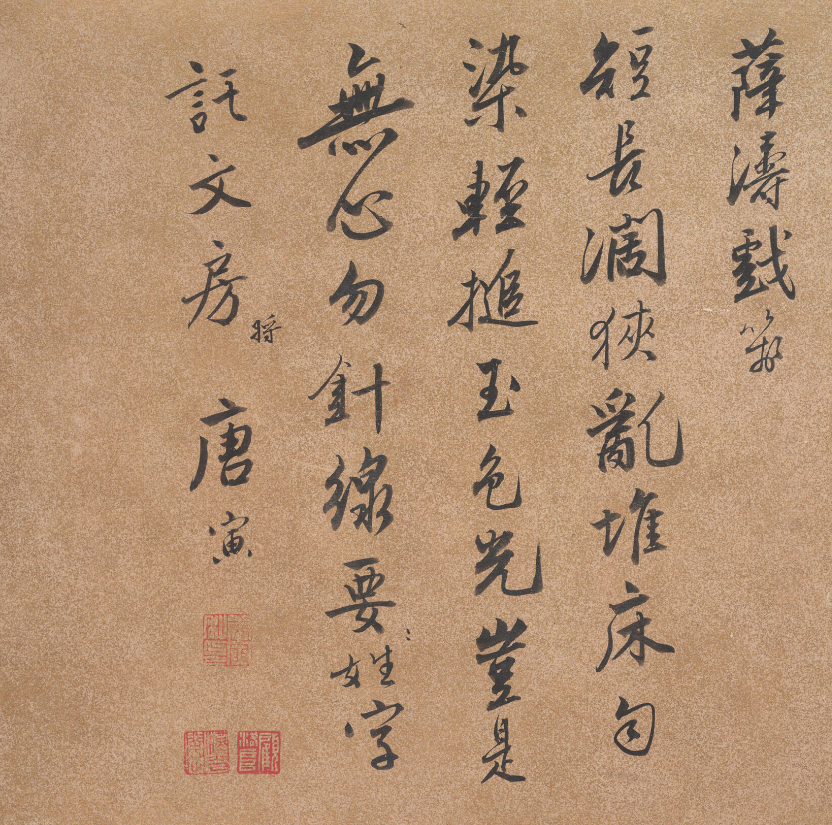 薛濤戲箋
短長濶狹亂堆床匀
染輕搥玉色光豈是
無心勿針線要姓字
託文房將
唐寅